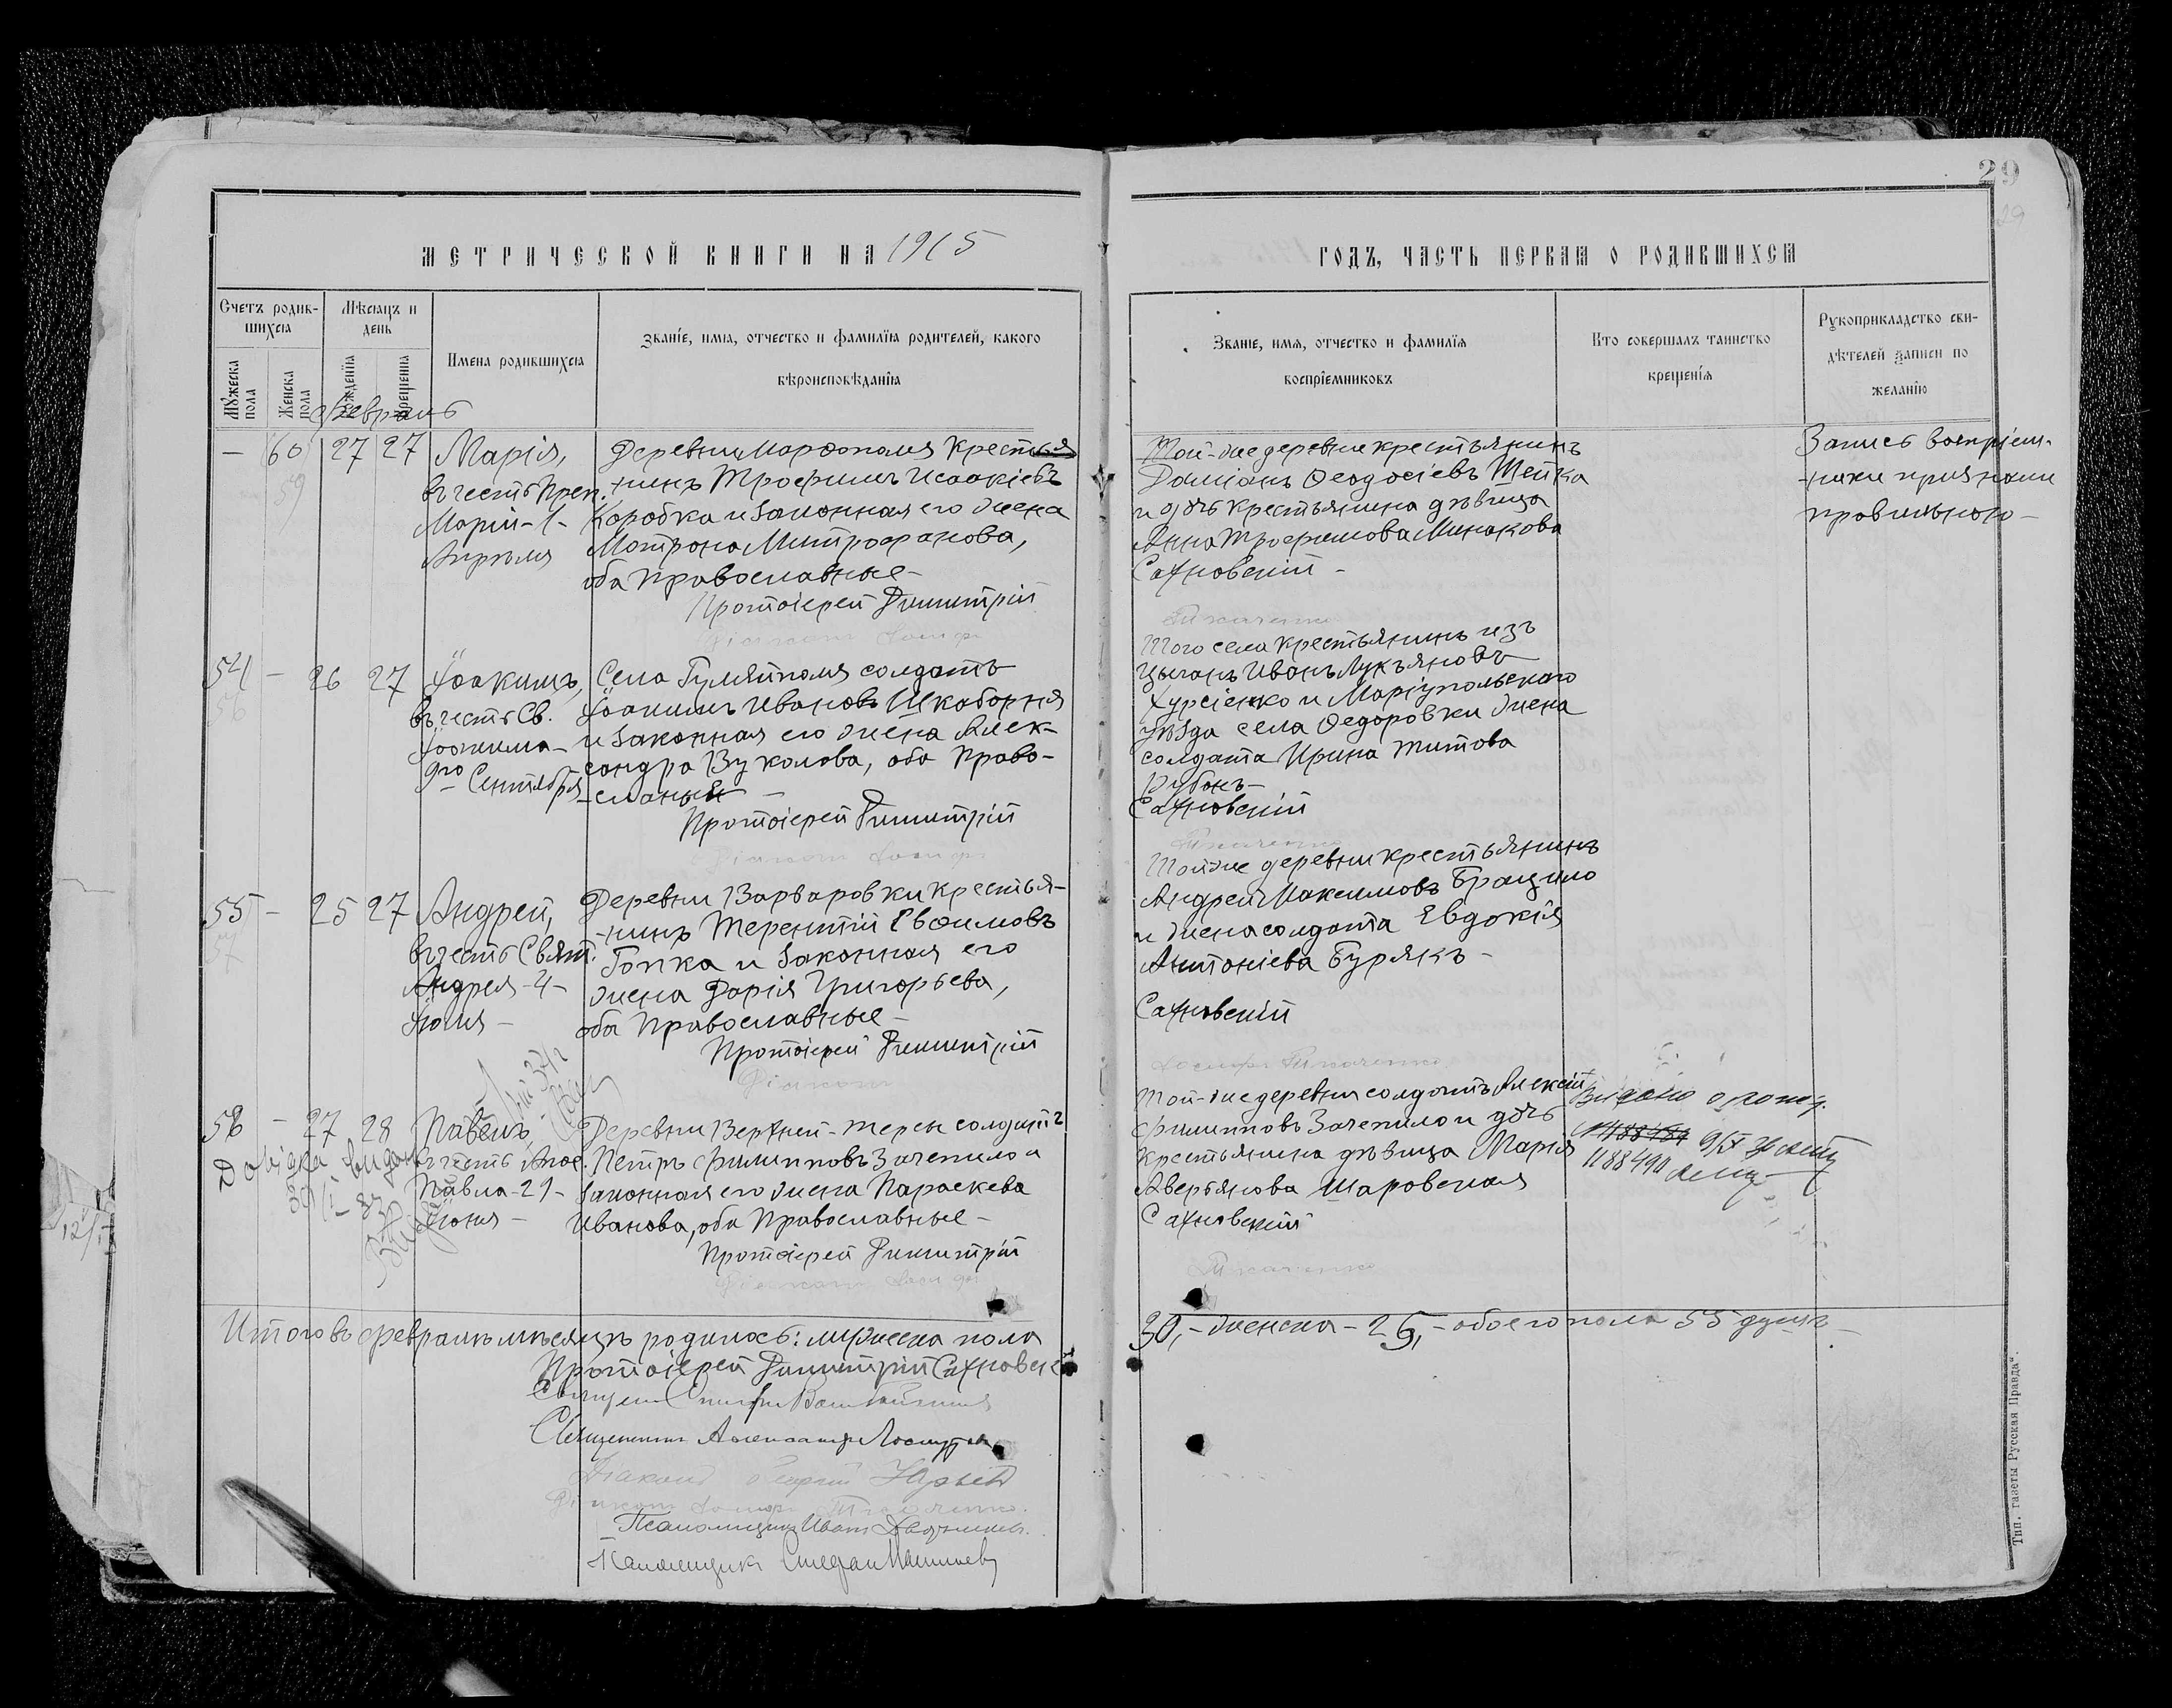 29
29
МЕТРИЧЕСКОЙ КНИГИ НА 1915
ГОДЪ, ЧАСТЬ ПЕРВАЯ О РОДИВШИХСЯ
Счетъ родив-
шихся
Мужеска пола
Женска пола
Мѣсяцъ и
день
рожденія
крещенія
Имена родившихся
Званіе, имя, отчество и фамилія родителей, какого
вѣроисповѣданія
Званіе, имя, отчество и фамилія
воспріемниковъ
Кто совершалъ таинство
крещенія
Рукоприкладство сви-
дѣтелей записи по
желанію
Февраль
— 60 27 27
59
Марія,
въ честь Преп.
Маріи -1-
Апрѣля
Деревни Марфополя крестья
-нинъ Трофимъ Исаакіевъ
Коробка и законная его жена
Матрона Митрофанова,
оба православные -
Протоіерей Димитрій
Діаконъ Іосифъ
Той-же деревни крестьянинъ
Даміанъ Ѳеодосіевъ
и дочь крестьянина дѣвица
Анна Трофимова Минакова
Сахновскій -
Ткаченко
Запись воспріем-
-ники признали
правильною -
54 - 26 27
56
Іоакимъ,
въ честь Св.
Іоакима -
9го Сентября
Села Гуляйполя солдатъ
Іоакимъ Ивановъ Шкаборня
и законная его жена Алек-
сандра Вуколова, оба право-
-славные -
Протоіерей Димитрій
Діаконъ Іосифъ
Того села крестьянинъ изъ
цыганъ Иванъ Лукьяновъ
и Маріупольскаго
уѣзда села Ѳедоровки жена
солдата Ирина Титова
Сахновскій
Ткаченко
55 - 25 27
57
Андрей,
въ честь Свят.
Андрея -4-
Іюля -
Деревни Варваровки крестья-
-нинъ Терентій Евѳимовъ
Гопка и законная его
жена Дарія Григорьева,
оба православные -
Протоіерей Димитрій
Діаконъ
Той же деревни крестьянинъ
Андрей Максимовъ
и жена солдата Евдокія
Антоніева Бурякъ -
Сахновскій
Іосифъ Ткаченко
56 - 27 28
Павелъ,
въ честь Апос.
Павла -29-
Іюня -
Довідка видана
Деревни Верхней-Терсы солдатъ
Петръ Филипповъ Зачепило и
законная его жена Параскева
Иванова, оба православные -
Протоіерей Димитрій
Діаконъ Іосифъ
Той-же деревни солдатъ Алексій
Филипповъ Зачепило и дочь
крестьянина дѣвица Марія
Аверьянова Шаровская
Сахновскій
Ткаченко
1188490
Итого въ Февралѣ мѣсяцѣ родилось: мужеска пола
30,- женска - 25,- обоего пола 55 душъ -
Протоіерей Димитрій Сахновскій
Священникъ Александръ
Діаконъ
Діаконъ Іосифъ Ткаченко.
Псаломщикъ Иванъ
Псаломщикъ Стефанъ
Тип. газеты „Русская Правда“.